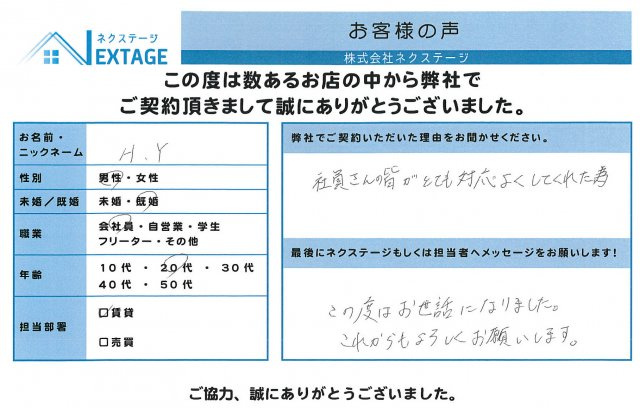 ネクステージ
NEXTAGE
お客様の声
株式会社ネクステージ
この度は数あるお店の中から弊社で
ご契約頂きまして誠にありがとうございました。
お名前・
ニックネーム
H.Y
性別
男性・女性
未婚/既婚
未婚・既婚
職業
会社員・自営業・学生
フリーター・その他
年齢
10代 ・ 20代 ・ 30代
40代 ・ 50代
担当部署
☐賃貸
☐売買
弊社でご契約いただいた理由をお聞かせください。
社員さんの皆がとても対応よくしてくれた為
最後にネクステージもしくは担当者へメッセージをお願いします!
この度はお世話になりました。
これからもよろしくお願いします。
ご協力、誠にありがとうございました。